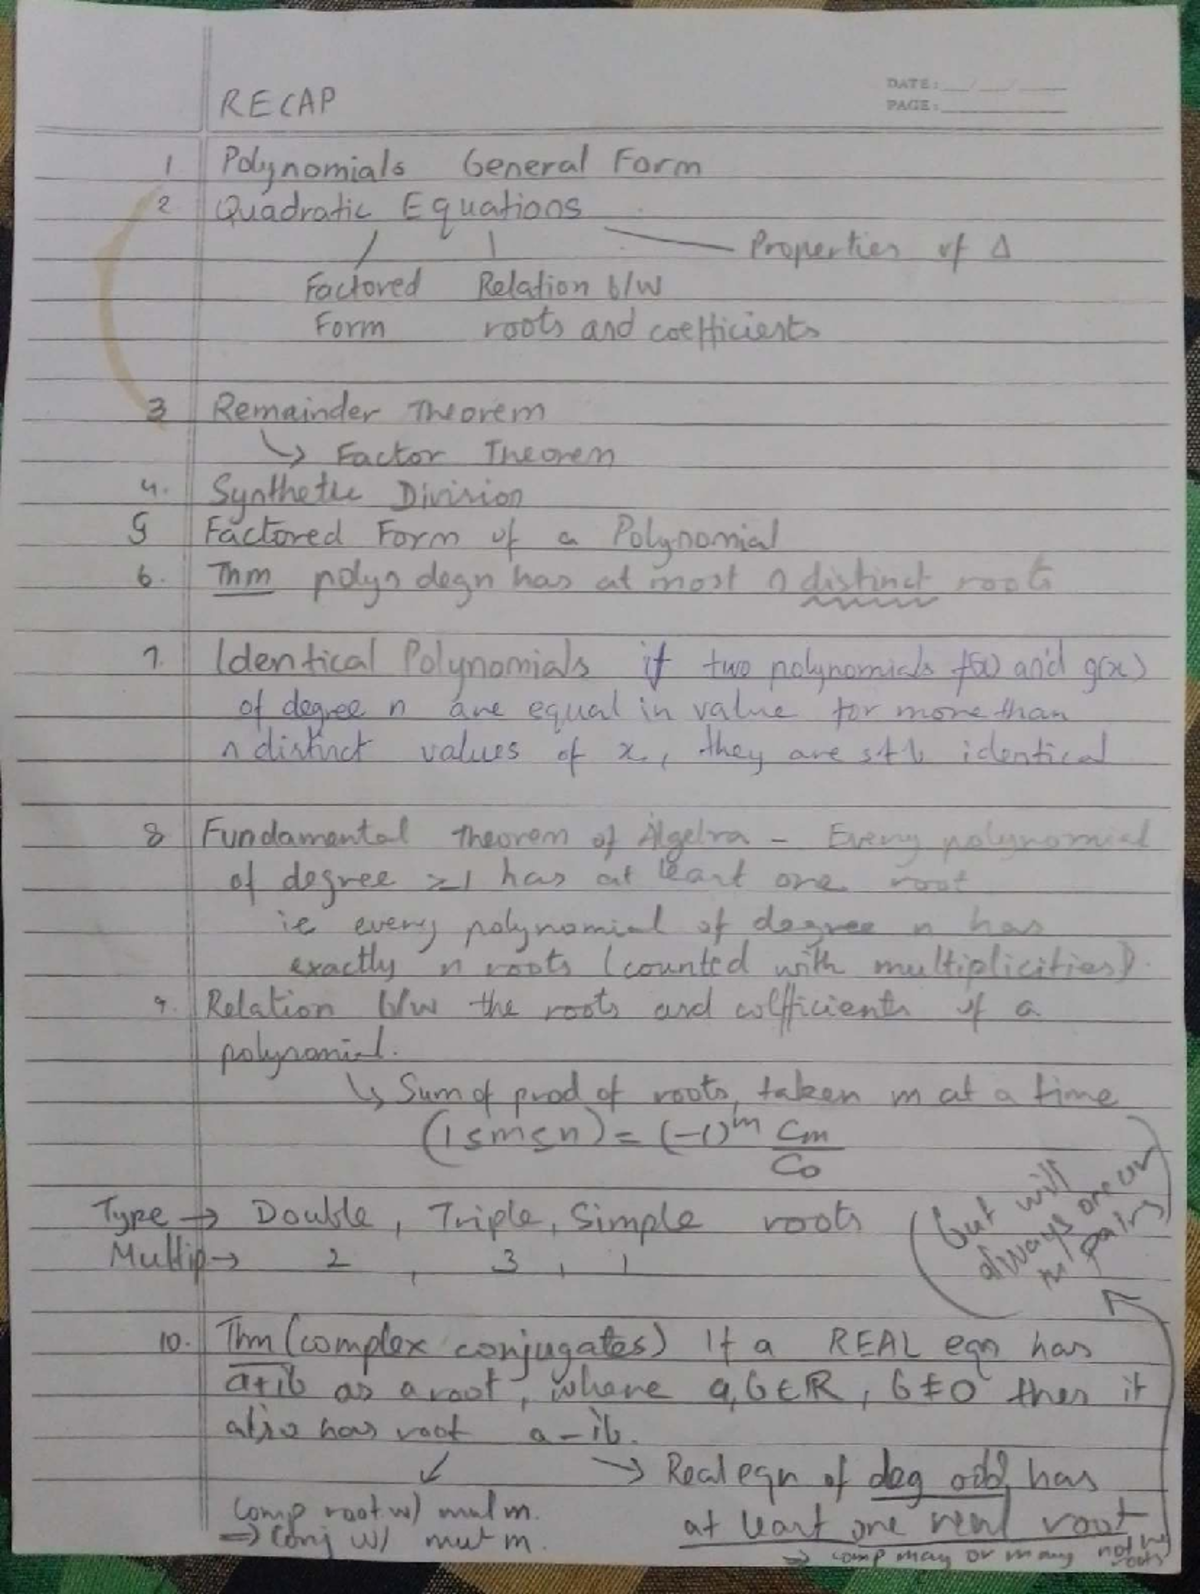 RECAP
DATE: __/__/__
PAGE:
1 Polynomials General Form
2 Quadratic Equations
Properties of Δ
Factored Relation b/w
Form roots and coefficients
3 Remainder Theorem
↳ Factor Theorem
4. Synthetic Division
5 Factored Form of a Polynomial
6. Thm polyn deg n has at most n distinct roots
7. Identical Polynomials if two polynomials f(x) and g(x)
of degree n are equal in value for more than
n distinct values of x, they are stb identical
8 Fundamental Theorem of Algebra - Every polynomial
of degree ≥1 has at least one root
ie every polynomial of degree n has
exactly n roots (counted with multiplicities).
9. Relation b/w the roots and coefficients of a
polynomial.
↳ Sum of prod of roots, taken m at a time
(1≤m≤n) = (-1)^m Cm/C0
Type → Double, Triple, Simple roots
Multip → 2, 3, 1
(but will
always occur
in pairs)
10. Thm (complex conjugates) If a REAL eqn has
a+ib as a root, where a,b∈ℝ, b≠0 then it
also has root a-ib.
→ Real eqn of deg odd has
at least one real root
Comp root w/ mul m.
⇒ Conj w/ mul m.
⇒ comp may or may not be
roots